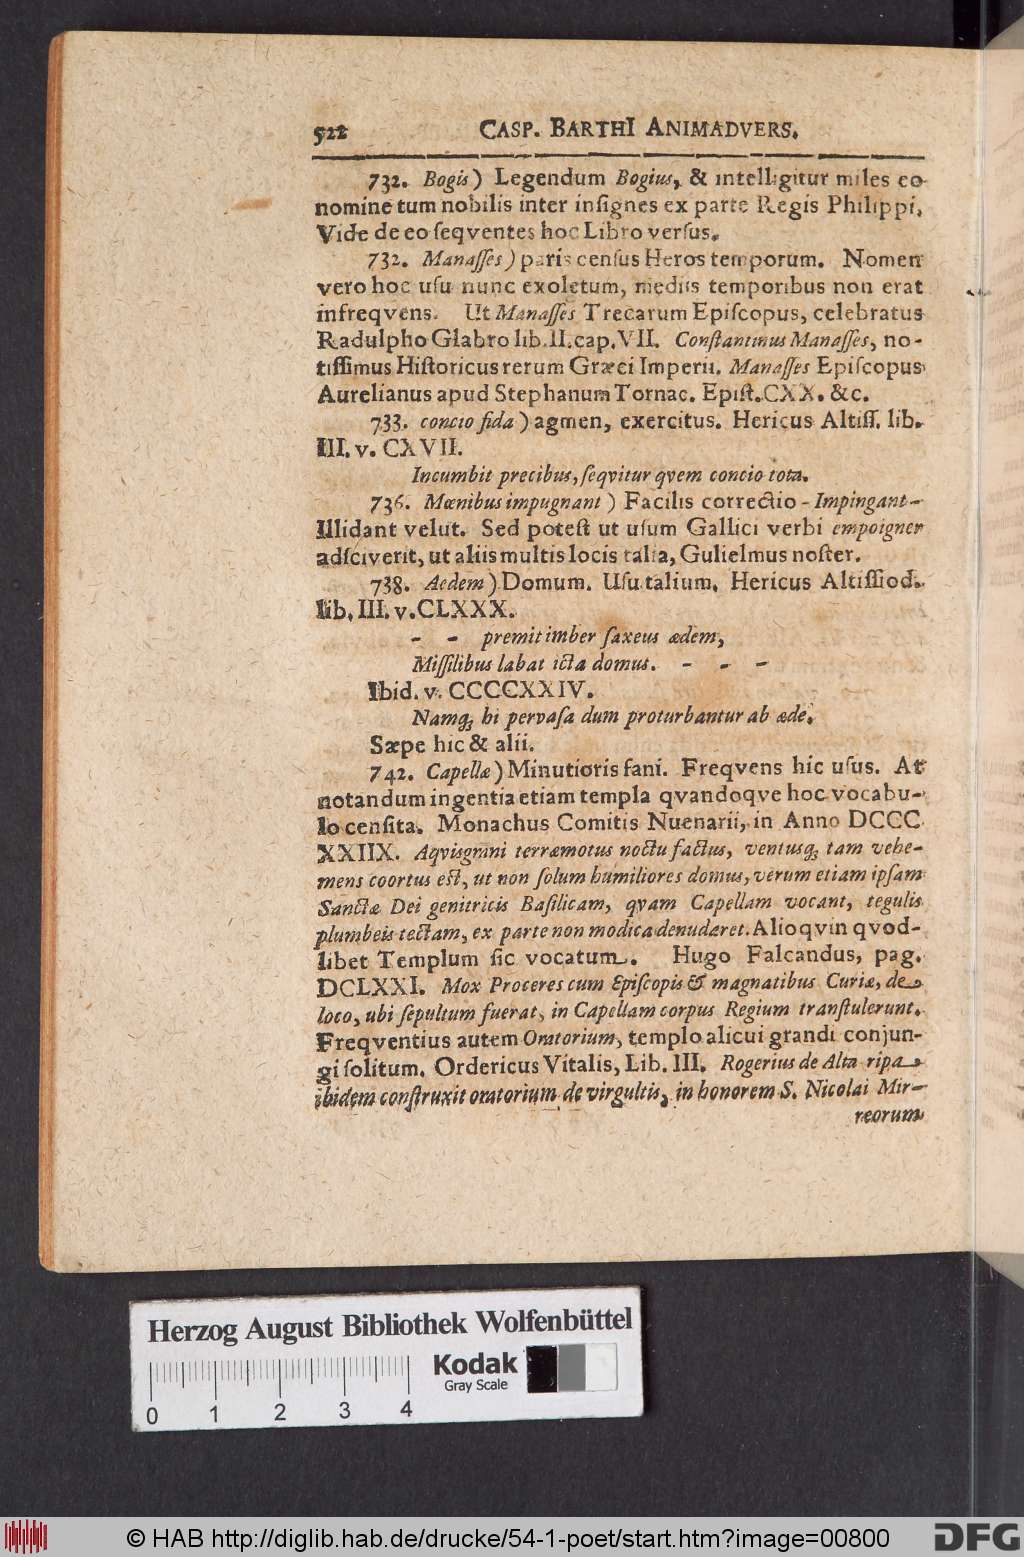 522 CASP. BARTHI ANIMADVERS.
732. Bogis) Legendum Bogius, & intelligitur miles eo
nomine tum nobilis inter inſignes ex parte Regis Philippi,
Vide de eo ſeqventes hoc Libro verſus.
732. Manaſſes) paris cenſus Heros temporum. Nomen
vero hoc uſu nunc exoletum, mediis temporibus non erat
infreqvens. Ut Manaſſes Trecarum Epiſcopus, celebratus
Radulpho Glabro lib. II. cap. VII. Conſtantinus Manaſſes, no-
tiſſimus Hiſtoricus rerum Græci Imperii. Manaſſes Epiſcopus
Aurelianus apud Stephanum Tornac. Epiſt. CXX. &c.
733. concio fida) agmen, exercitus. Hericus Altiſſ. lib.
III. v. CXVII.
Incumbit precibus, ſeqvitur qvem concio tota.
736. Mœnibus impugnant) Facilis correctio - Impingant-
Illidant velut. Sed poteſt ut uſum Gallici verbi empoigner
adſciverit, ut aliis multis locis talia, Gulielmus noſter.
738. Aedem) Domum. Uſu talium. Hericus Altiſſiod.
lib. III. v. CLXXX.
- - premit imber ſaxeus ædem,
Miſſilibus labat icta domus. - - -
Ibid. v. CCCCXXIV.
Namqꝫ hi pervaſa dum proturbantur ab æde.
Sæpe hic & alii.
742. Capellæ) Minutioris fani. Freqvens hic uſus. At
notandum ingentia etiam templa qvandoqve hoc vocabu-
lo cenſita. Monachus Comitis Nuenarii, in Anno DCCC
XXIIX. Aqvisgrani terræmotus noctu factus, ventusqꝫ tam vehe-
mens coortus eſt, ut non ſolum humiliores domus, verum etiam ipſam
Sanctæ Dei genitricis Baſilicam, qvam Capellam vocant, tegulis
plumbeis tectam, ex parte non modica denudaret. Alioqvin qvod-
libet Templum ſic vocatum. Hugo Falcandus, pag.
DCLXXI. Mox Proceres cum Epiſcopis & magnatibus Curiæ, de
loco, ubi ſepultum fuerat, in Capellam corpus Regium tranſtulerunt.
Freqventius autem Oratorium, templo alicui grandi conjun-
gi ſolitum. Ordericus Vitalis, Lib. III. Rogerius de Alta ripa
ibidem conſtruxit oratorium de virgultis, in honorem S. Nicolai Mir-
reorum
Herzog August Bibliothek Wolfenbüttel
Kodak
Gray Scale
0 1 2 3 4
© HAB http://diglib.hab.de/drucke/54-1-poet/start.htm?image=00800
DFG